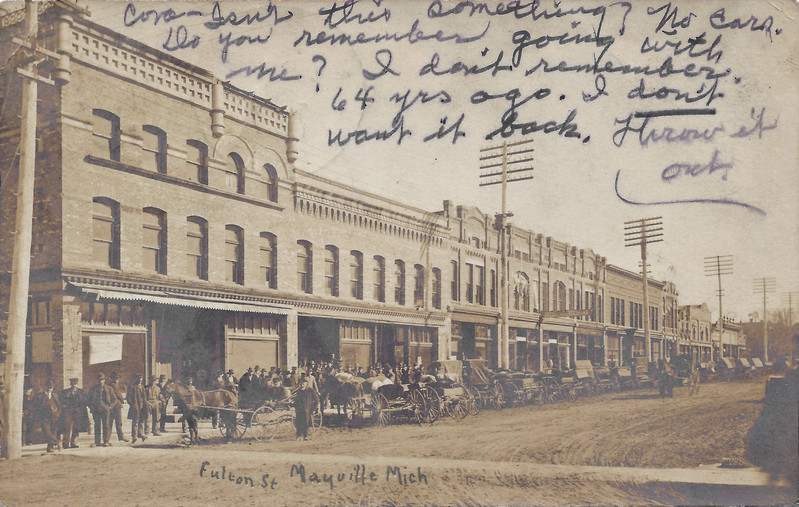 Cora - Isn't this something? No cars.
Do you remember going with
me? I don't remember.
64 yrs ago. I don't
want it back. Throw it
out.
Fulton St Mayville Mich